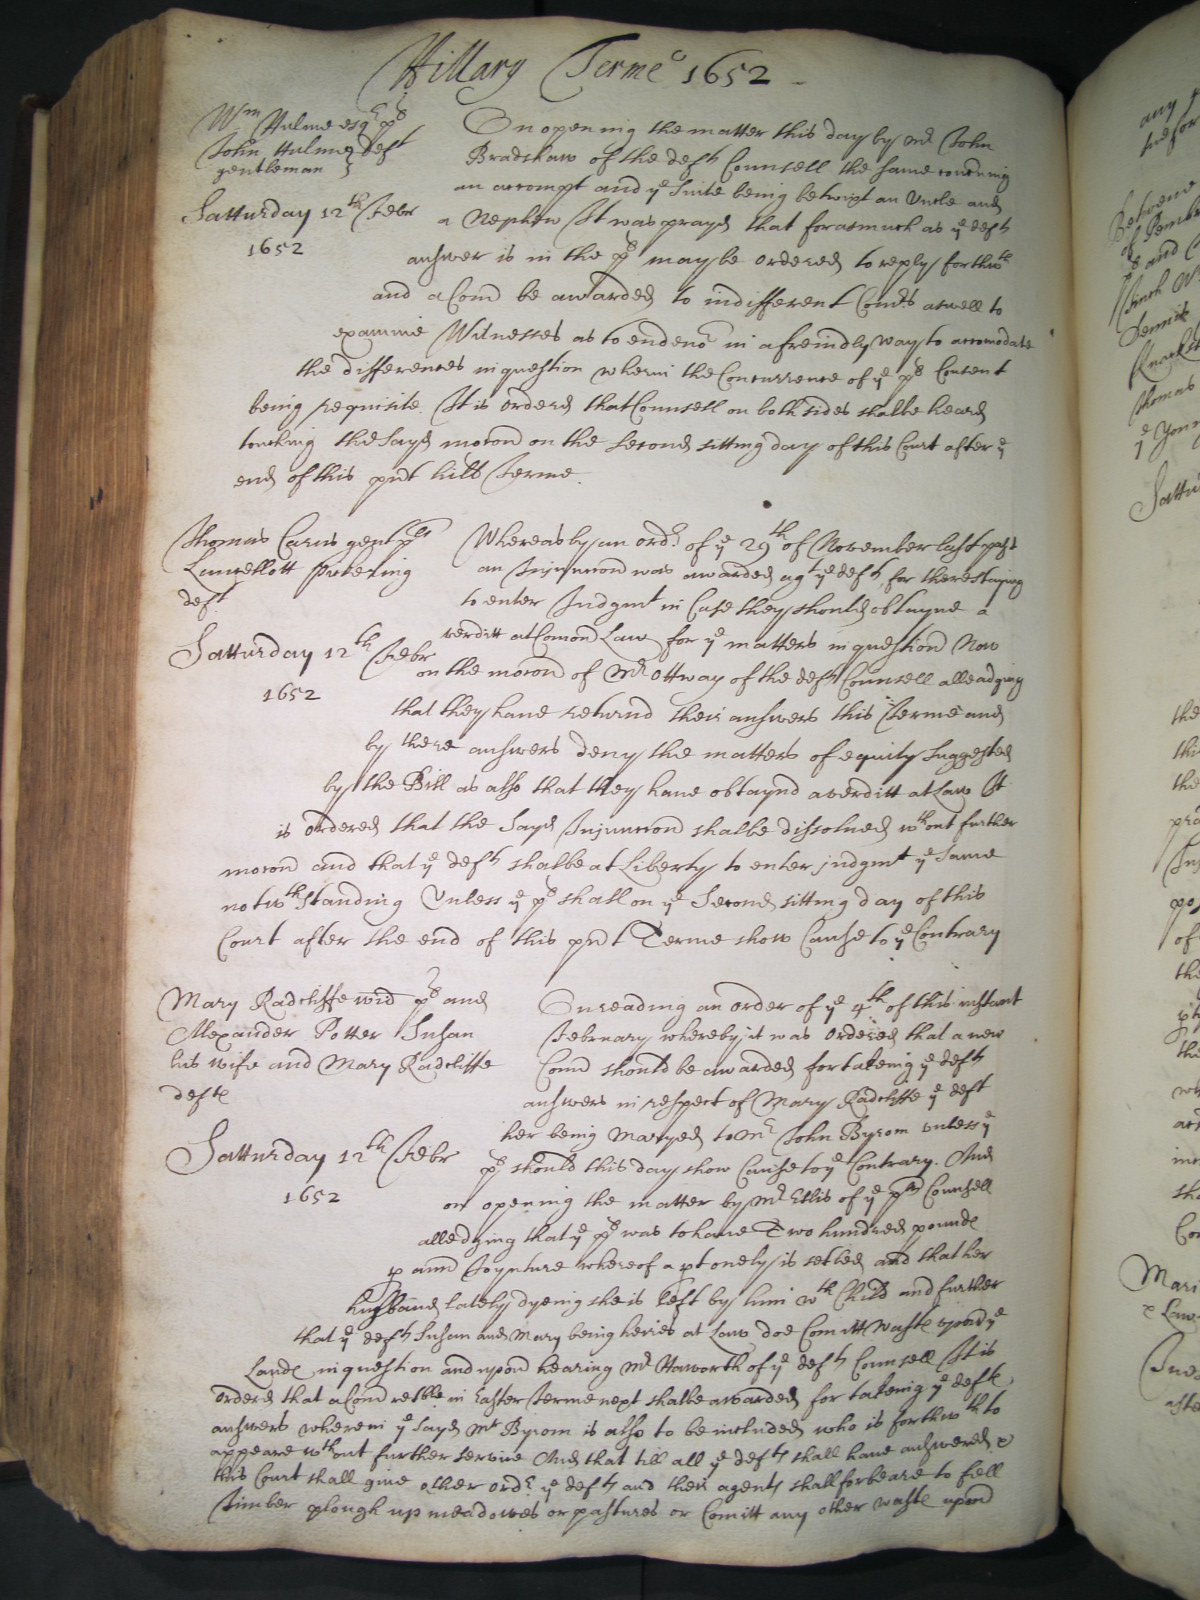 Hillary Terme 1652
Wm Hulme esqr plt
John Hulme deft
gentleman
Satturday 12th Febr
1652
On opening the matter this day by Mr John
Bradshaw of the defts Counsell the same concerning
an accompt and ye suite being betwixt an Uncle and
a Nephew It was prayed that forasmuch as ye defts
answer is in the plt may be ordered to reply forthwth
and a Comn be awarded to indifferent Comrs aswell to
examine Witnesses as to endenor in a freindly way to accomodate
the differences in question wherin the Concurrence of ye plts Consent
being requisite. It is Ordered that Counsell on both sides shalbe heard
touching the sayd mocon on the second sitting day of this Court after ye
end of this pnt hill Terme.
Thomas Carus gent plt
Lancellott Pickering
deft
Satturday 12th Febr
1652
Whereas by an ordr of ye 29th of November last past
an Injunccon was awarded agt ye defts for there staying
to enter Judgmt in Case they should obtayne a
verditt at Comon Law for ye matters in question Now
on the mocon of Mr Ottway of the defts Counsell alleadging
that they have returnd their answers this Terme and
by there answers deny the matters of equity suggested
by the Bill as also that they have obtaynd a verditt at Law It
is ordered that the Sayd Injunccon shalbe dissolued wthout further
mocon and that ye defts shalbe at Liberty to enter judgmt ye same
notwthstanding Unless ye plt shall on ye Second sitting day of this
Court after the end of this pnt Terme show Cause to ye Contrary
Mary Radcliffe wid plt and
Alexander Potter Susan
his wife and Mary Radcliffe
defts
Satturday 12th Febr
1652
On reading an order of ye 4th of this instant
February whereby it was Ordered that a new
Comn should be awarded for takeing ye defts
answers in respect of Mary Radcliffe ye deft
her being Marryed to Mr John Byrom unless ye
plt should this day show Cause to ye Contrary. And
on opening the matter by Mr Ellis of ye plts Counsell
alledging that ye plt was to have Two hundred pounds
p ann Joynture whereof a pt onely is setled and that her
husband lately dyeing she is left by him wth Child and further
that ye defts Susan and Mary being heires at Law doe Comitt Waste upon ye
Lands in question and upon hearing Mr Haworth of ye defts Counsell It is
Ordered that a Comn retble in Easter Terme next shalbe awarded for takeing ye defts
answers wherein ye sayd Mr Byrom is also to be included who is forthwth to
appeare wthout further service And that till all ye defts shall have answered &
this Court shall give other ordr ye defts and their agents shall forbeare to fell
Timber plough up meadowes or pastures or Comitt any other waste upon